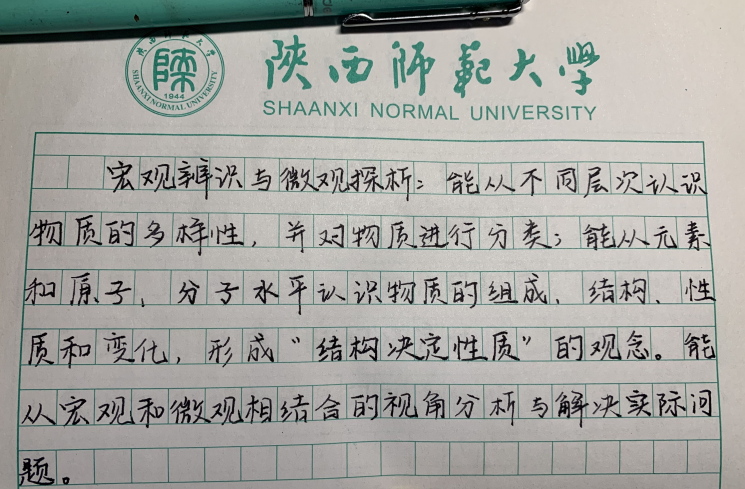 陕西师范大学
SHAANXI NORMAL UNIVERSITY
陕西师范大学
SHAANXI NORMAL UNIVERSITY
1944
宏观辨识与微观探析：能从不同层次认识
物质的多样性，并对物质进行分类；能从元素
和原子、分子水平认识物质的组成、结构、性
质和变化，形成“结构决定性质”的观念。能
从宏观和微观相结合的视角分析与解决实际问
题。